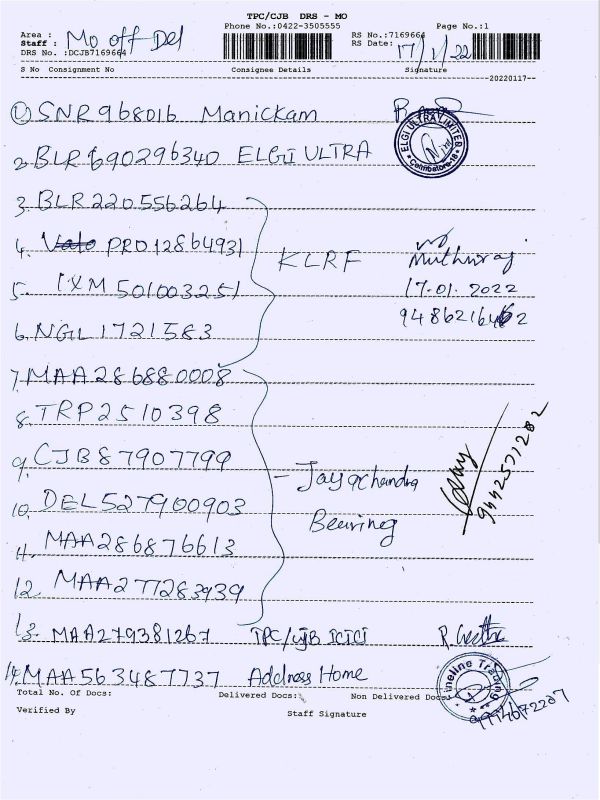 TPC/CJB DRS - MO
Phone No.:0422-3505555
Page No.:1
Area :
Staff : Mo off Del
DRS No. :DCJB7169664
RS No.:7169664
RS Date: 17/1/22
S No Consignment No Consignee Details Signature
20220117
1) SNR968016 Manickam
2. BLR690296340 ELGI ULTRA
ELGI ULTRA LIMITED
Coimbatore-18
3. BLR220556264
4. PRD12864931
KLRF Muthuraj
5. IXM 501003251 17-01.2022
6. NGL1721583
7. MAA286880008
8. TRP2510398
9. CJB87907799
Jayachandra
9442571282
10. DEL527900903
Bearing
11. MAA286876613
12. MAA277283939
13. MAA279381267 TPC/CJB ICICI P. Geetha
14. MAA563487737 Address Home
Total No. Of Docs: Delivered Docs: Non Delivered Docs
Verified By Staff Signature